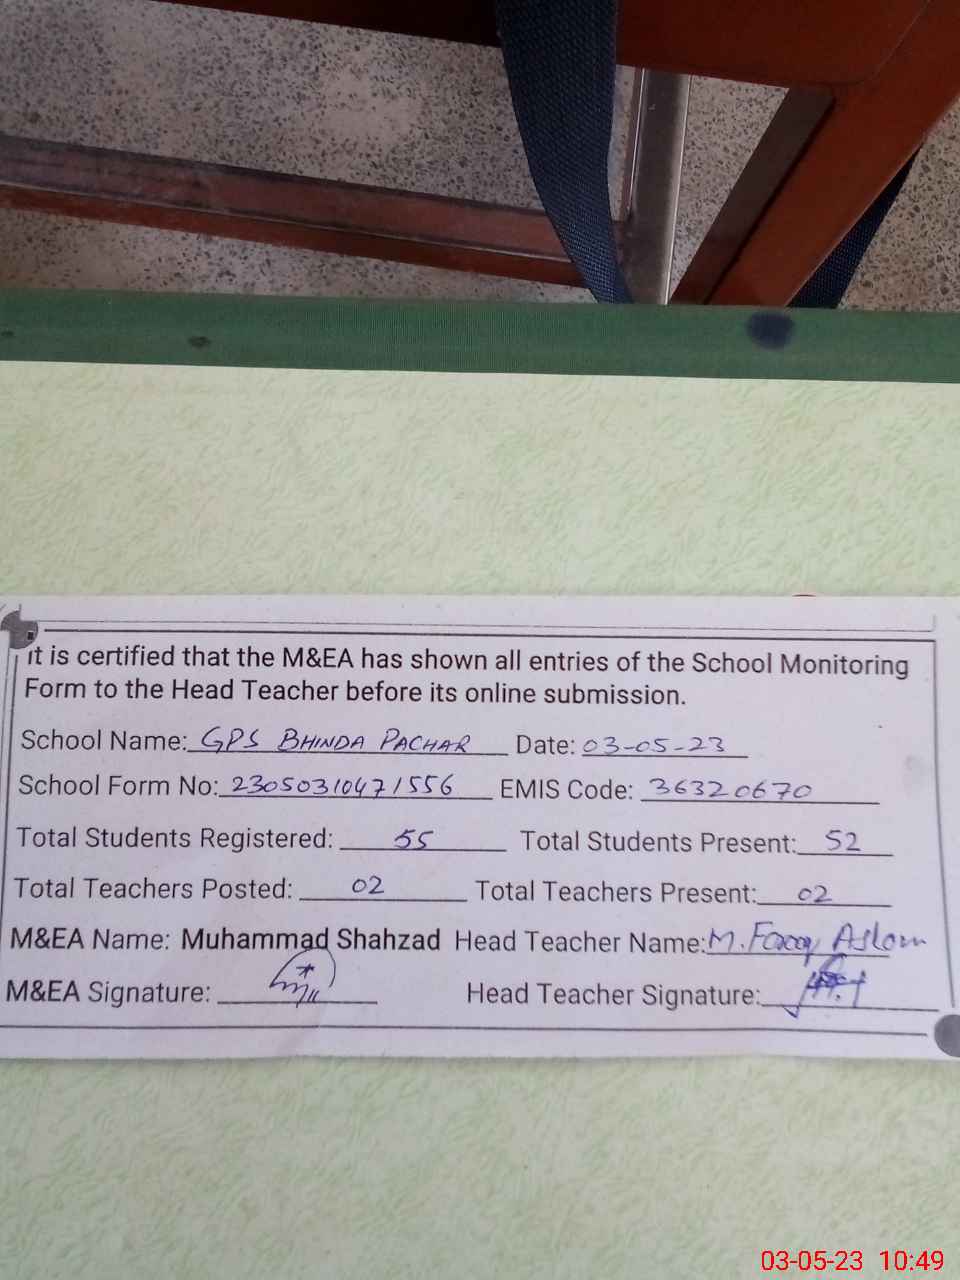 it is certified that the M&EA has shown all entries of the School Monitoring
Form to the Head Teacher before its online submission.
School Name: GPS BHINDA PACHAR Date: 03-05-23
School Form No: 23050310471556 EMIS Code: 36320670
Total Students Registered: 55 Total Students Present: 52
Total Teachers Posted: 02 Total Teachers Present: 02
M&EA Name: Muhammad Shahzad Head Teacher Name: M. Farooq Aslam
M&EA Signature: Head Teacher Signature:
03-05-23 10:49